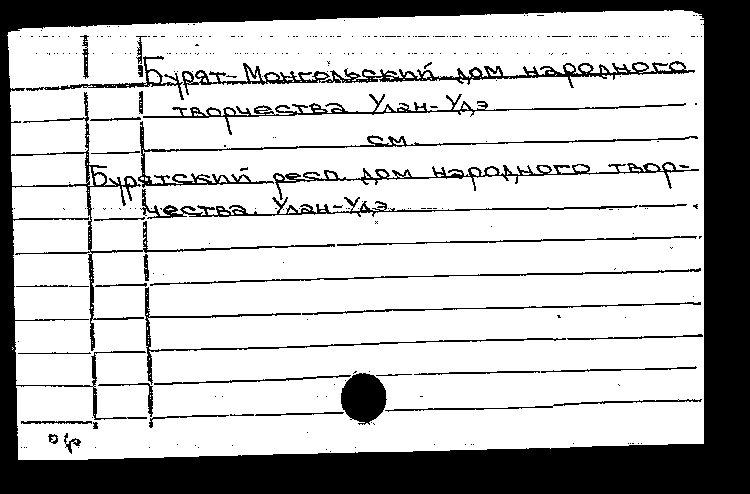 Бурят-Монгольский дом народного
творчества Улан-Удэ
см.
Бурятский респ. дом народного твор-
чества. Улан-Удэ.